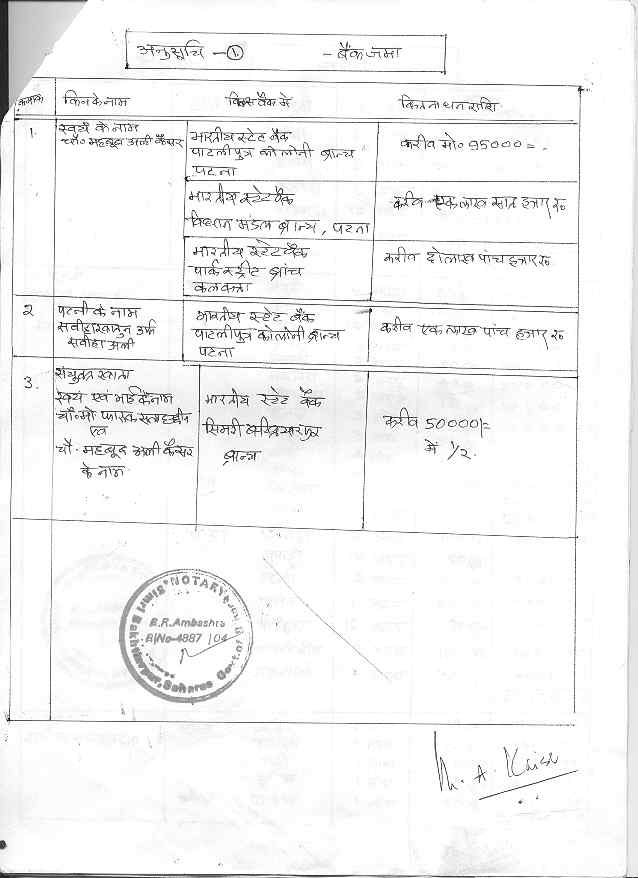 अनुसूचि - ১. - बैंक जमा
क्रमांक किन के नाम किस बैंक में कितना धन राशि
1. स्वयं के नाम
चौ० महबूब अली कैसर
भारतीय स्टेट बैंक
पाटलीपुत्र कोलोनी ब्रान्च
पटना
करीब मो० 95000=
भारतीय स्टेट बैंक
विधान मंडल ब्रान्च, पटना
करीब एक लाख सात हजार रु
भारतीय स्टेट बैंक
पार्क स्ट्रीट ब्रांच
कलकत्ता
करीब दो लाख पांच हजार रु
2 पत्नी के नाम
अली
भारतीय स्टेट बैंक
पाटलीपुत्र कोलोनी ब्रान्च
पटना
करीब एक लाख पांच हजार रु
3. संयुक्त खाता
स्वयं एवं भाई के नाम
एवं
चौ. महबूब अली कैसर
के नाम
भारतीय स्टेट बैंक
सिमरी बख्तियारपुर
ब्रान्च
करीब 50000/=
में 1/2.
NOTARY
Simri Bakhtiarpur, Saharsa Govt. of
B.R.Ambashra
R/No-4887/04
M. A. Kaiser